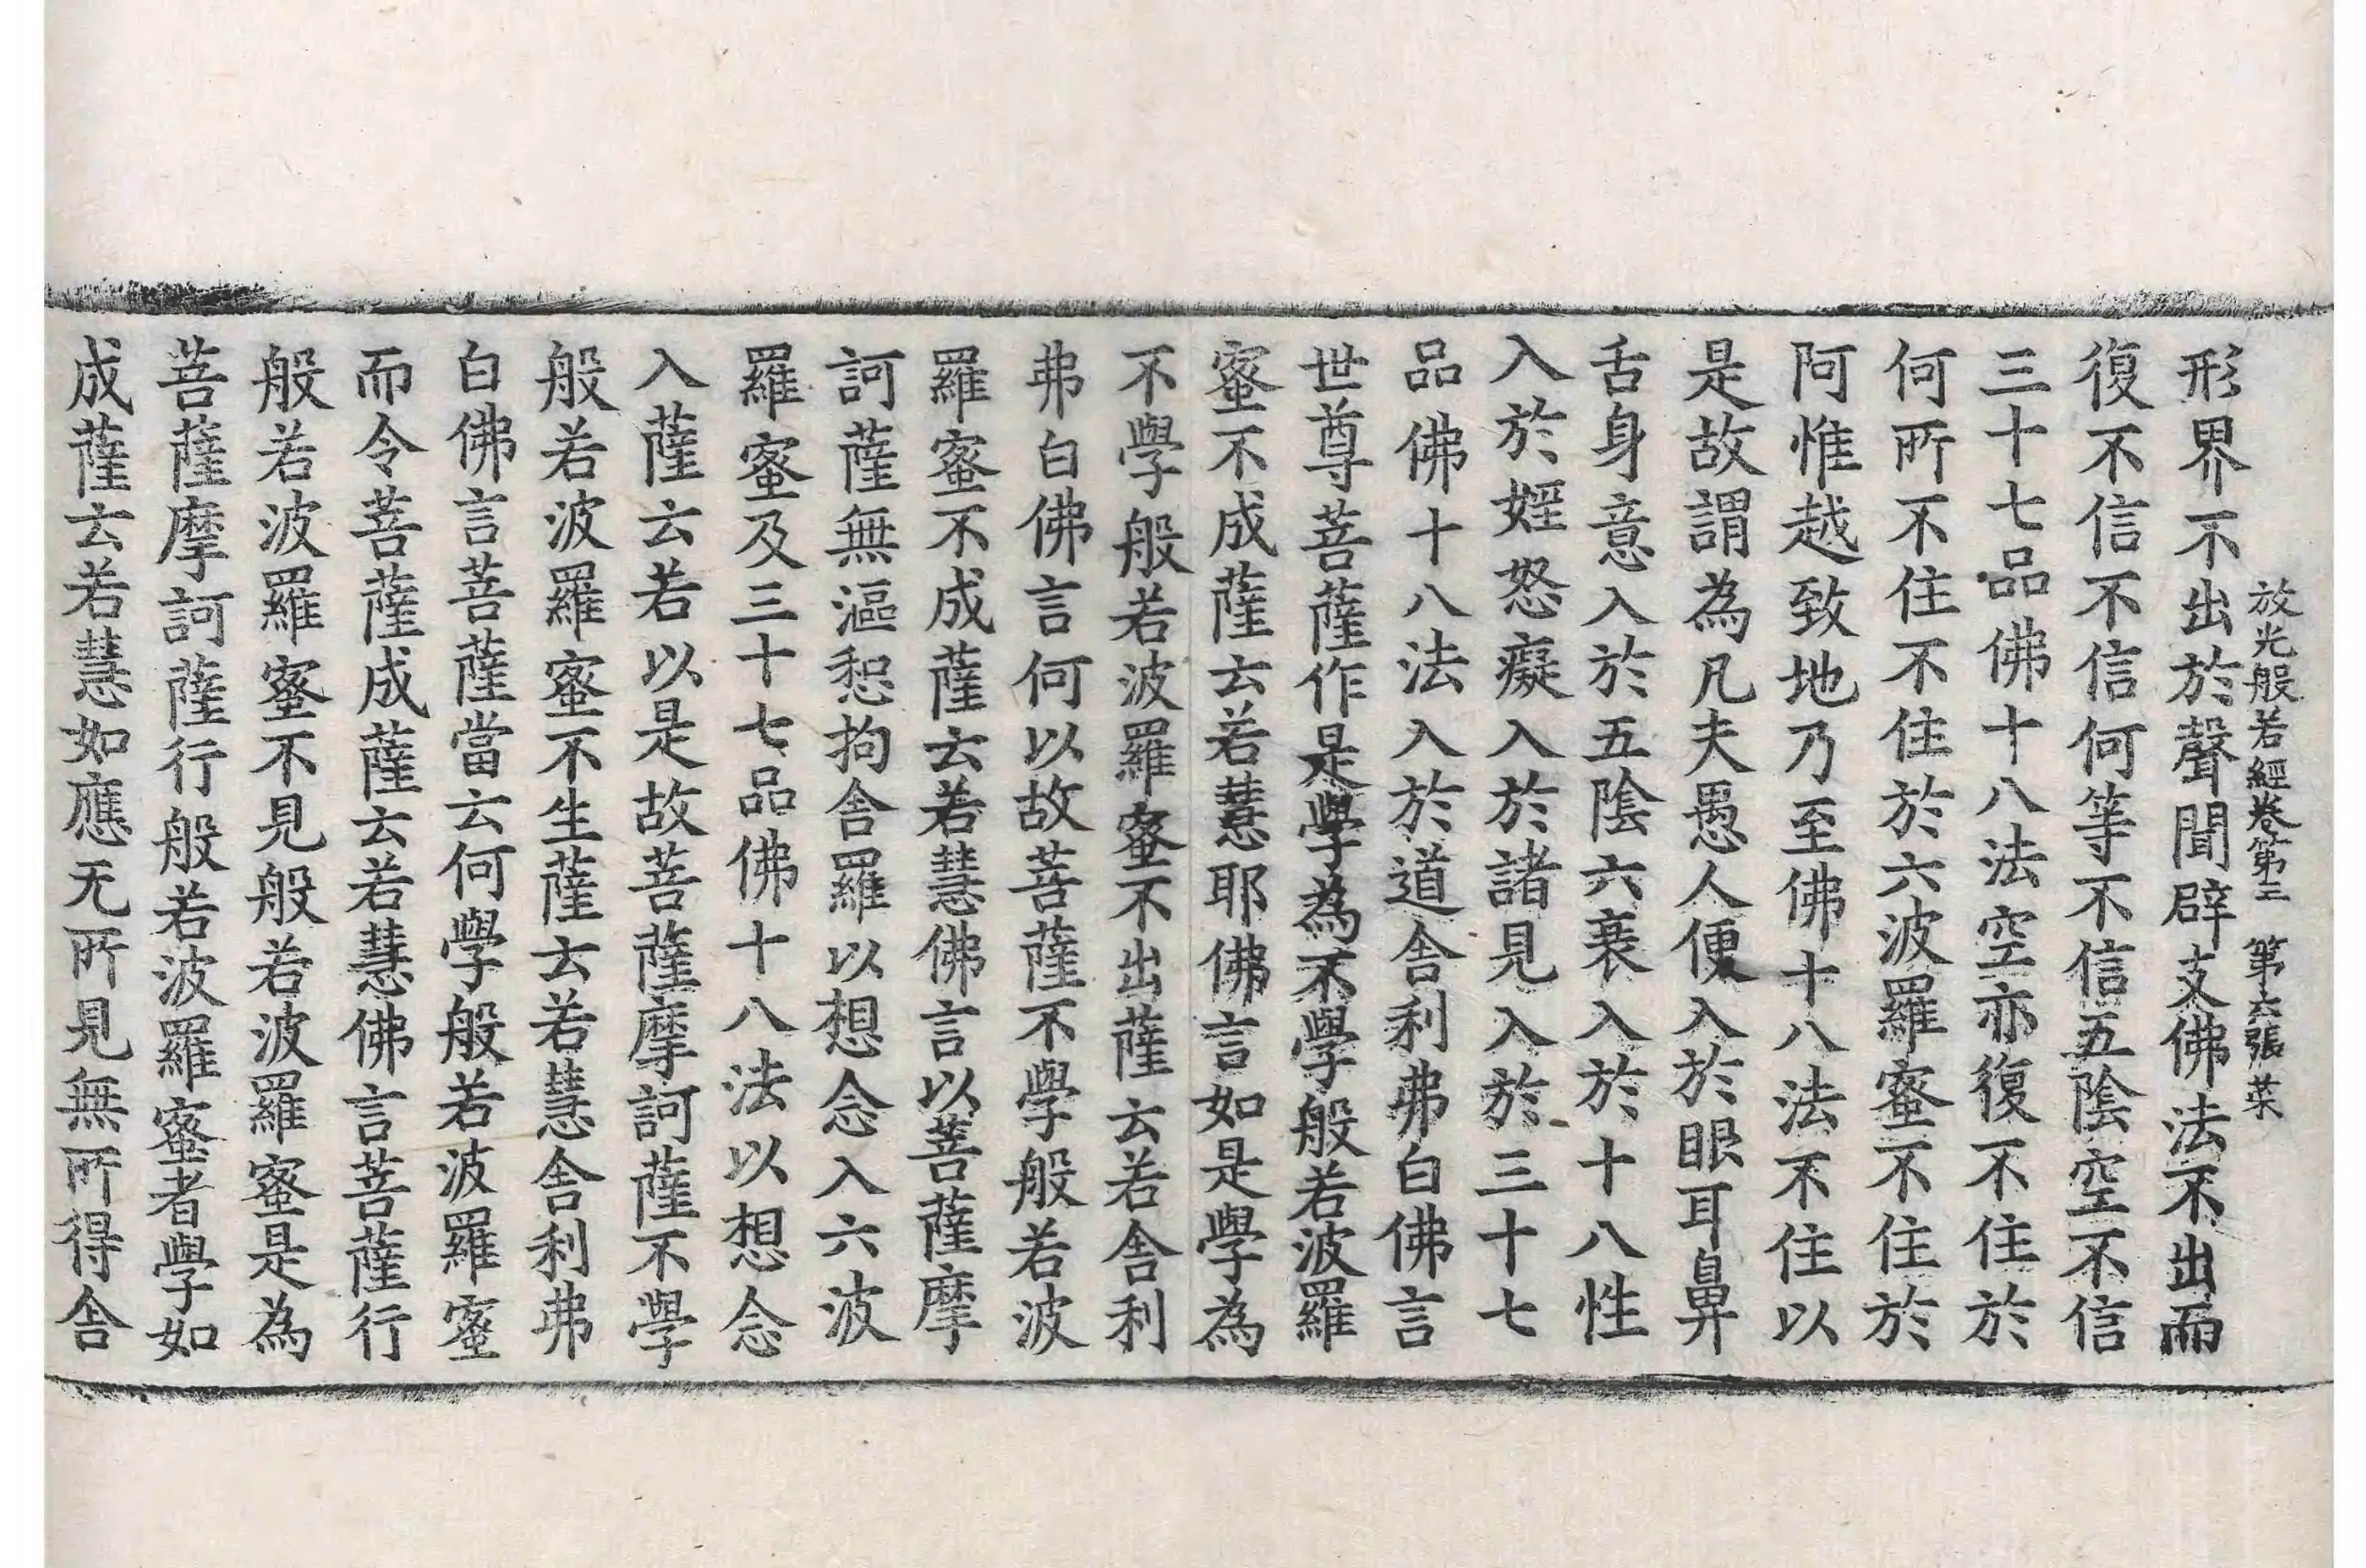 放光般若經卷第三　第六張　菜
形界不出於聲聞辟支佛法不出而
復不信不信何等不信五陰空不信
三十七品佛十八法空亦復不住於
何所不住不住於六波羅蜜不住於
阿惟越致地乃至佛十八法不住以
是故謂為凡夫愚人便入於眼耳鼻
舌身意入於五陰六衰入於十八性
入於婬怒癡入於諸見入於三十七
品佛十八法入於道舍利弗白佛言
世尊菩薩作是學為不學般若波羅
蜜不成薩云若慧耶佛言如是學為
不學般若波羅蜜不出薩云若舍利
弗白佛言何以故菩薩不學般若波
羅蜜不成薩云若慧佛言以菩薩摩
訶薩無漚惒拘舍羅以想念入六波
羅蜜及三十七品佛十八法以想念
入薩云若以是故菩薩摩訶薩不學
般若波羅蜜不生薩云若慧舍利弗
白佛言菩薩當云何學般若波羅蜜
而令菩薩成薩云若慧佛言菩薩行
般若波羅蜜不見般若波羅蜜是為
菩薩摩訶薩行般若波羅蜜者學如
成薩云若慧如應无所見無所得舍